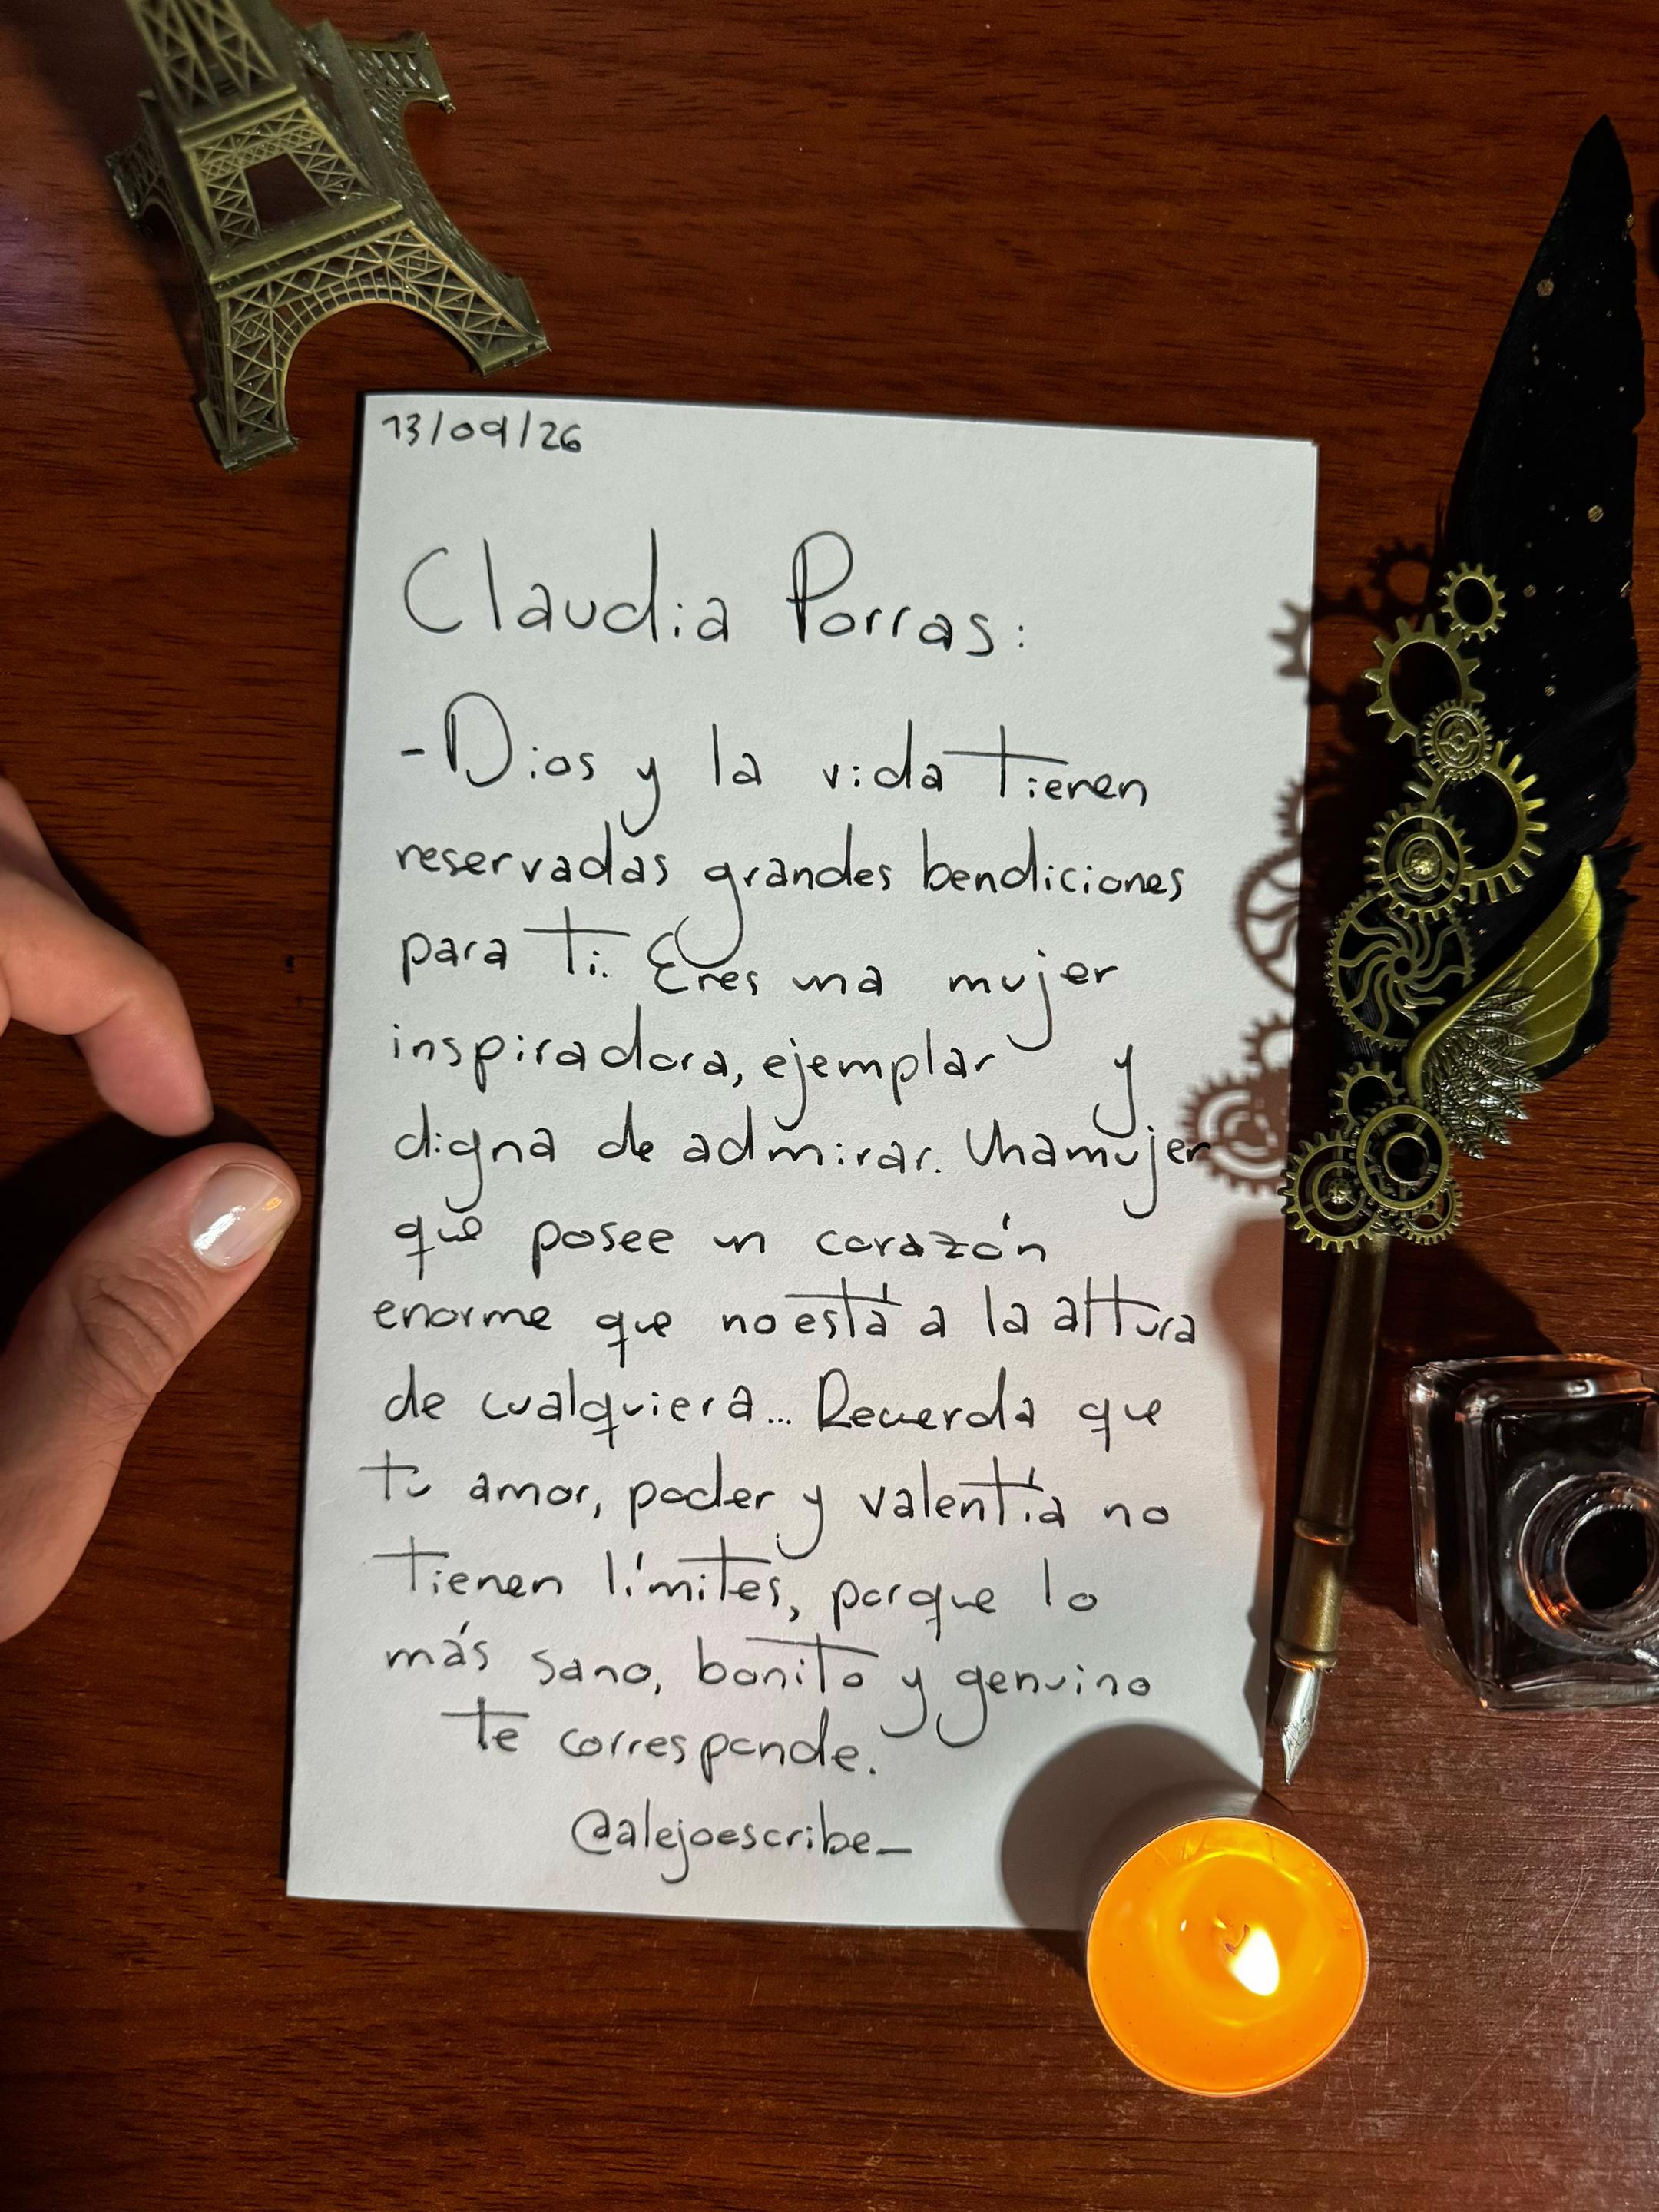 13/09/26
Claudia Porras:
-Dios y la vida tienen
reservadas grandes bendiciones
para ti. Eres una mujer
inspiradora, ejemplar y
digna de admirar. Una mujer
que posee un corazón
enorme que no está a la altura
de cualquiera... Recuerda que
tu amor, poder y valentía no
tienen límites, porque lo
más sano, bonito y genuino
te corresponde.
@alejoescribe_